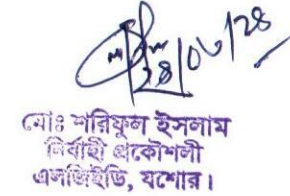 ২৪/০৬/২৪
মোঃ শরিফুল ইসলাম
নির্বাহী প্রকৌশলী
এলজিইডি, যশোর।